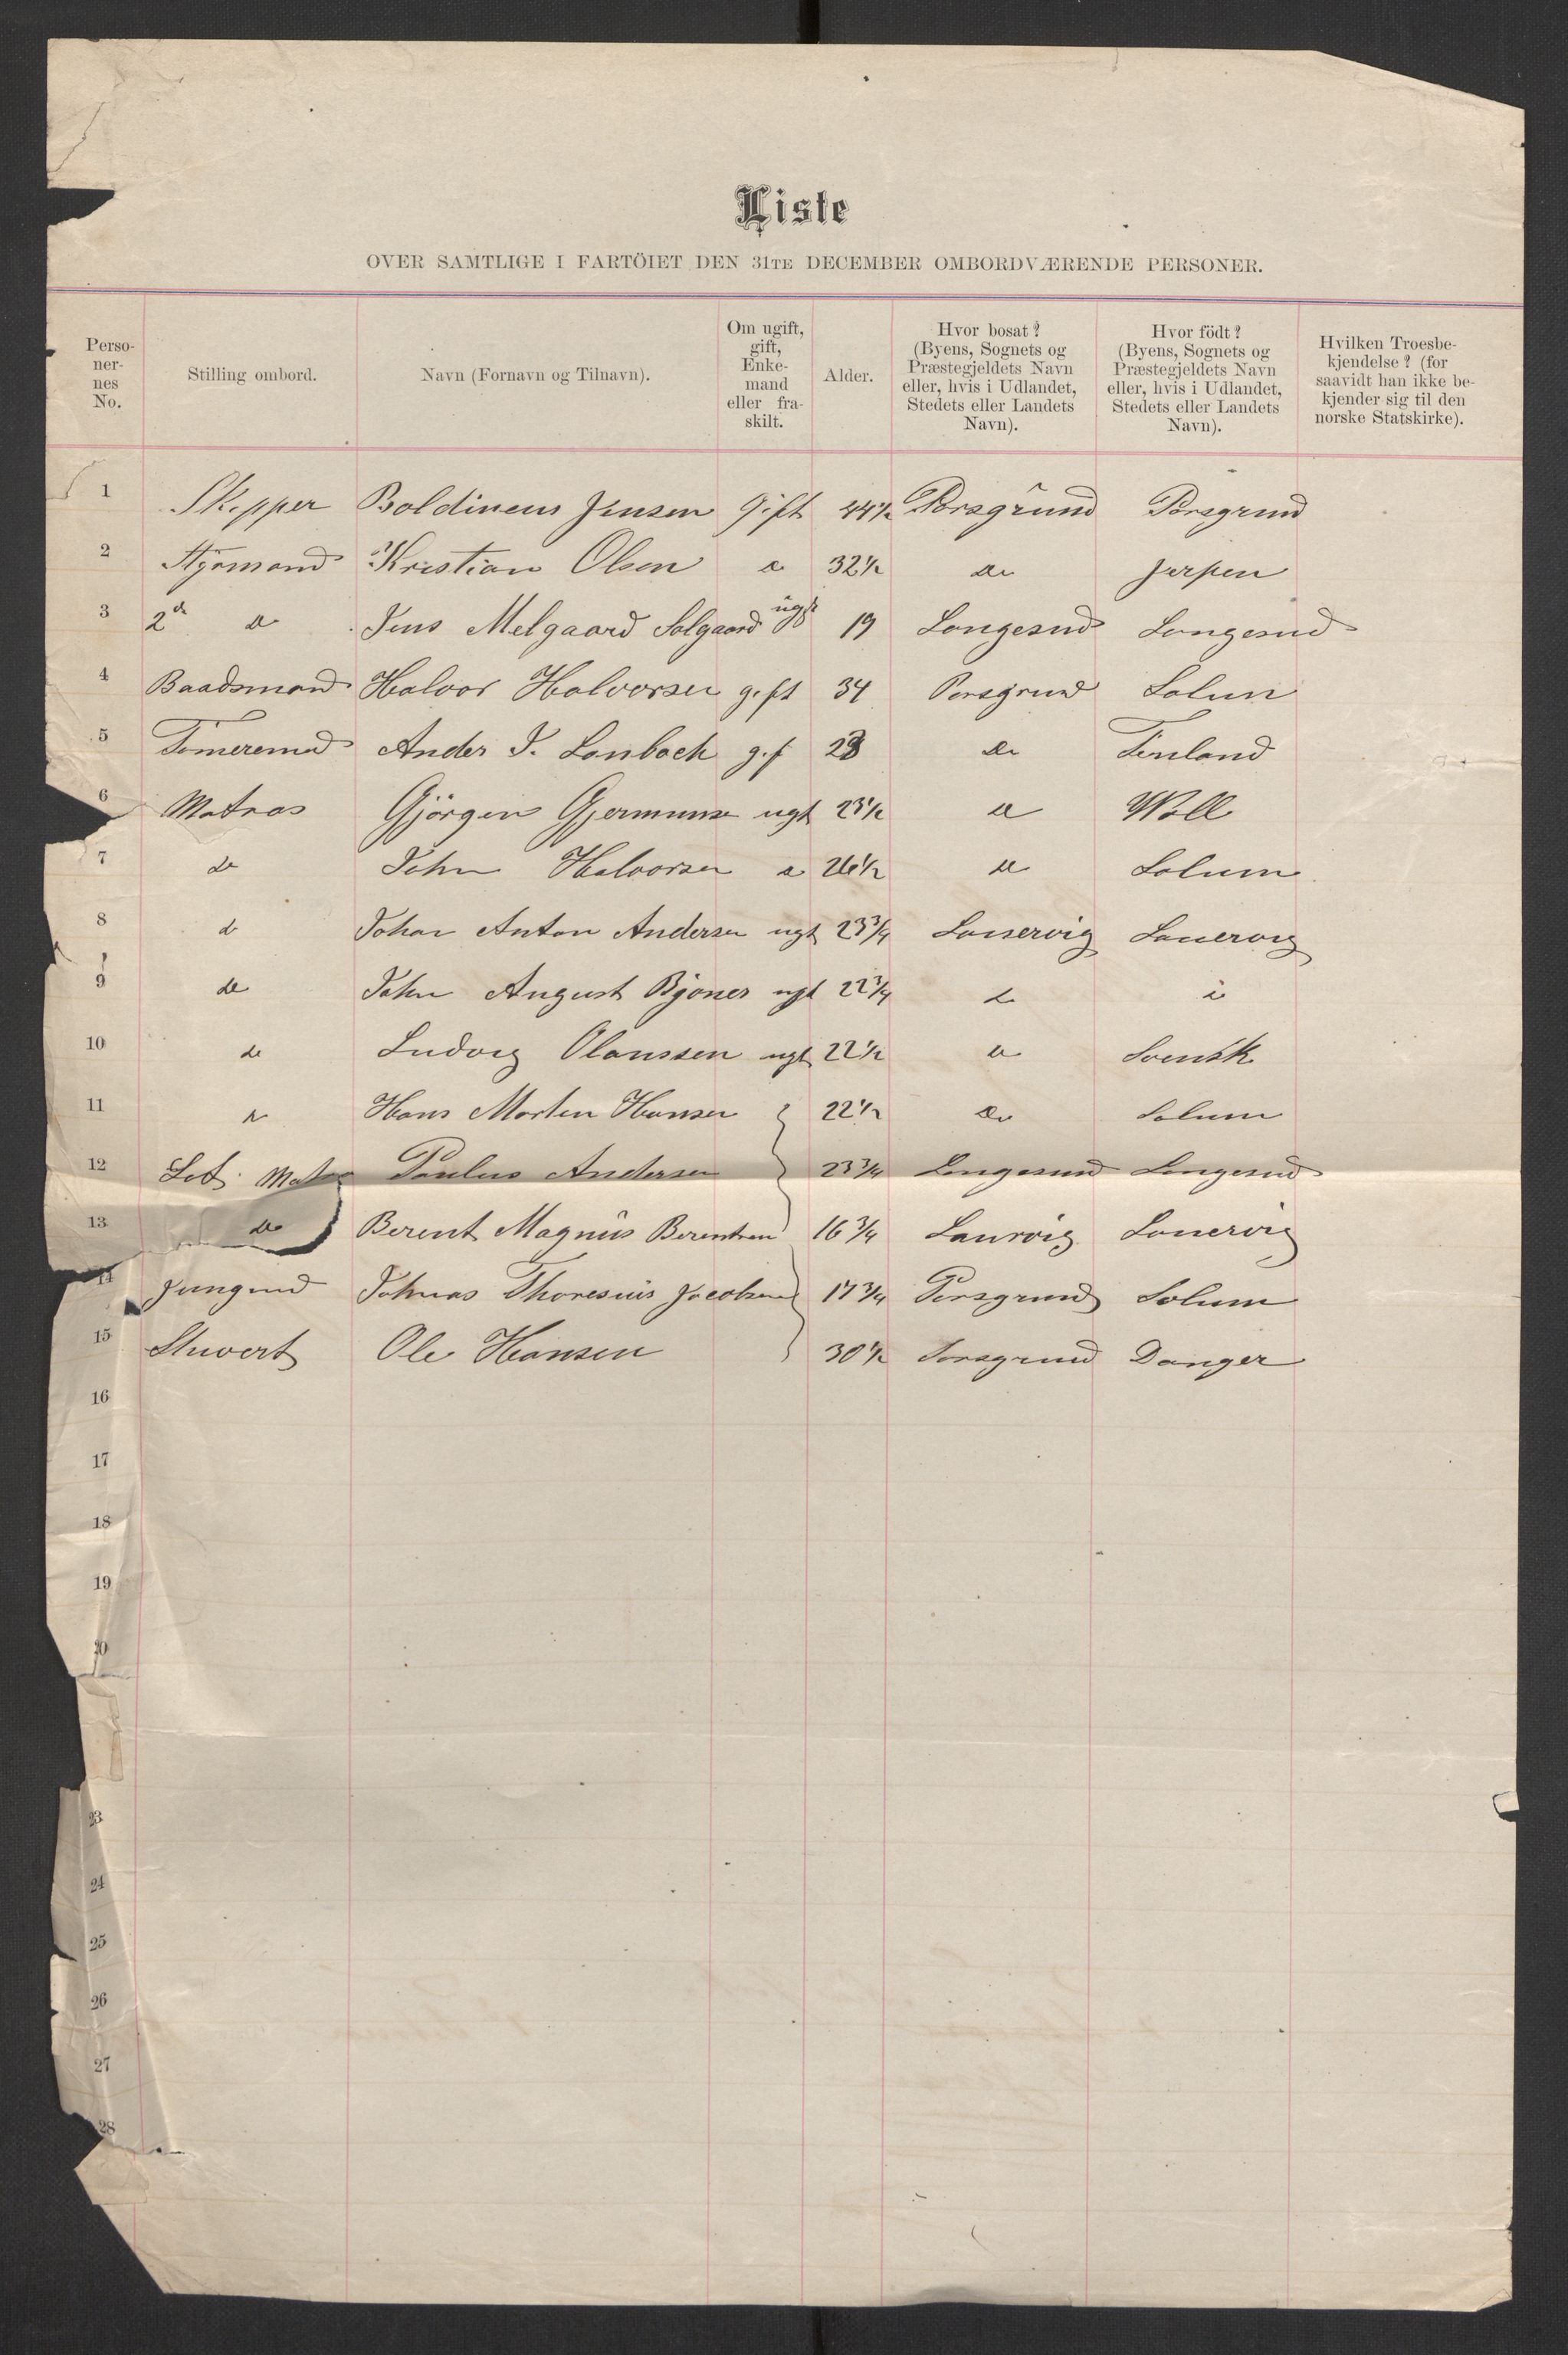 Liste
OVER SAMTLIGE I FARTÖIET DEN 31TE DECEMBER OMBORDVÆRENDE PERSONER.
Perso-
ner-
nes
No.
Stilling ombord.
Navn (Fornavn og Tilnavn).
Om ugift,
gift,
Enke-
mand
eller fra-
skilt.
Alder.
Hvor bosat?
(Byens, Sognets og
Præstegjeldets Navn
eller, hvis i Udlandet,
Stedets eller Landets
Navn).
Hvor födt?
(Byens, Sognets og
Præstegjeldets Navn
eller, hvis i Udlandet,
Stedets eller Landets
Navn).
Hvilken Troesbe-
kjendelse? (for
saavidt han ikke be-
kjender sig til den
norske Statskirke).
1 Skipper Boldineus Jensen Gift 44½ Porsgrund Porsgrund
2 Styrmand Kristian Olsen do 32½ do Jerpen
3 2d do Jens Melgaard Solgaard ugft 19 Langesund Langesund
4 Baadsmand Halvor Halvorsen gift 34 Porsgrund Solum
5 Tømermand Ander J. Lanback gif 28 do Finland
6 Matros Gjörgen Gjermunse ugt 23½ do Woll
7 do John Halvorsen do 26½ do Solum
8 do Johan Anton Andersen ugt 23¾ Laurvig Laurvig
9 do John August Bjoner ugt 22¾ do do
10 do Ludvig Olaussen ugt 22½ do Svensk
11 do Hans Morten Hansen 22½ do Solum
12 Let. Matros Paulus Andersen 23¾ Langesund Langesund
13 do Berent Magnus Berentsen 16¾ Laurvig Laurvig
14 Jungmd Johnas Thoresius Jacobsen 17¾ Porsgrund Solum
15 Stuvert Ole Hansen 30½ Porsgrund Danger
16
17
18
19
20
23
24
25
26
27
28